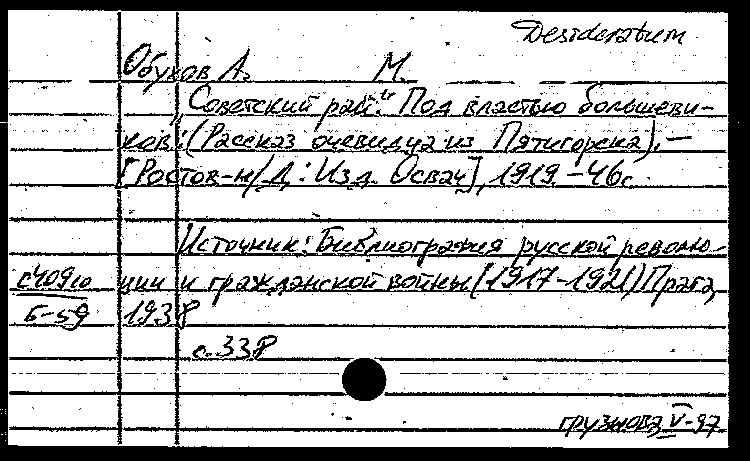 Desideratum
Обухов А. М.
"Советский рай." Под властью большеви-
ков: (Рассказ очевидца из Пятигорска). —
[Ростов-н/Д.: Изд. Осваг], 1919. – 46с.
Источник: Библиография русской револю-
с409ю ции и гражданской войны (1917-1921) Прага,
Б-59 1938
с. 338
грузнова, V-97